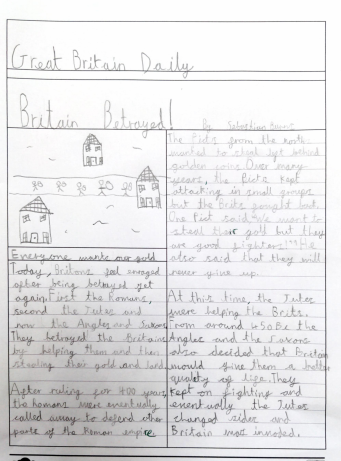 Great Britain Daily
Britain Betrayed!
By Sebastian
Everyone wants our gold
Today, Britons feel enraged
after being betrayed yet
again. First the Romans,
second the Jutes and
now the Angles and Saxons.
They betrayed the Britains
by helping them and then
stealing their gold and land.
After ruling for 400 years,
the Romans were eventually
called away to defend other
parts of the Roman empire.
The Picts from the north
wanted to steal left behind
golden coins. Over many
years, the Picts kept
attacking in small groups
but the Brits fought back.
One Pict said "We want to
steal their gold but they
are good fighters!" He
also said that they will
never give up.
At this time, the Jutes
were helping the Brits.
From around 450 the
Angles and the Saxons
also decided that Britain
would give them a better
quality of life. They
kept on fighting and
eventually the Jutes
changed sides and
Britain was invaded.